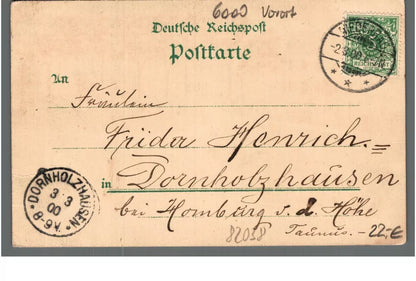 6000 Vorort
Deutsche Reichspost
Postkarte
An
Fräulein
Frieder Henrich
in Dornholzhausen
bei Homburg v. d. Höhe
Taunus. -22.-€
82038
DORNHOLZHAUSEN
3 3
00
8-9V.
REICHSPOST